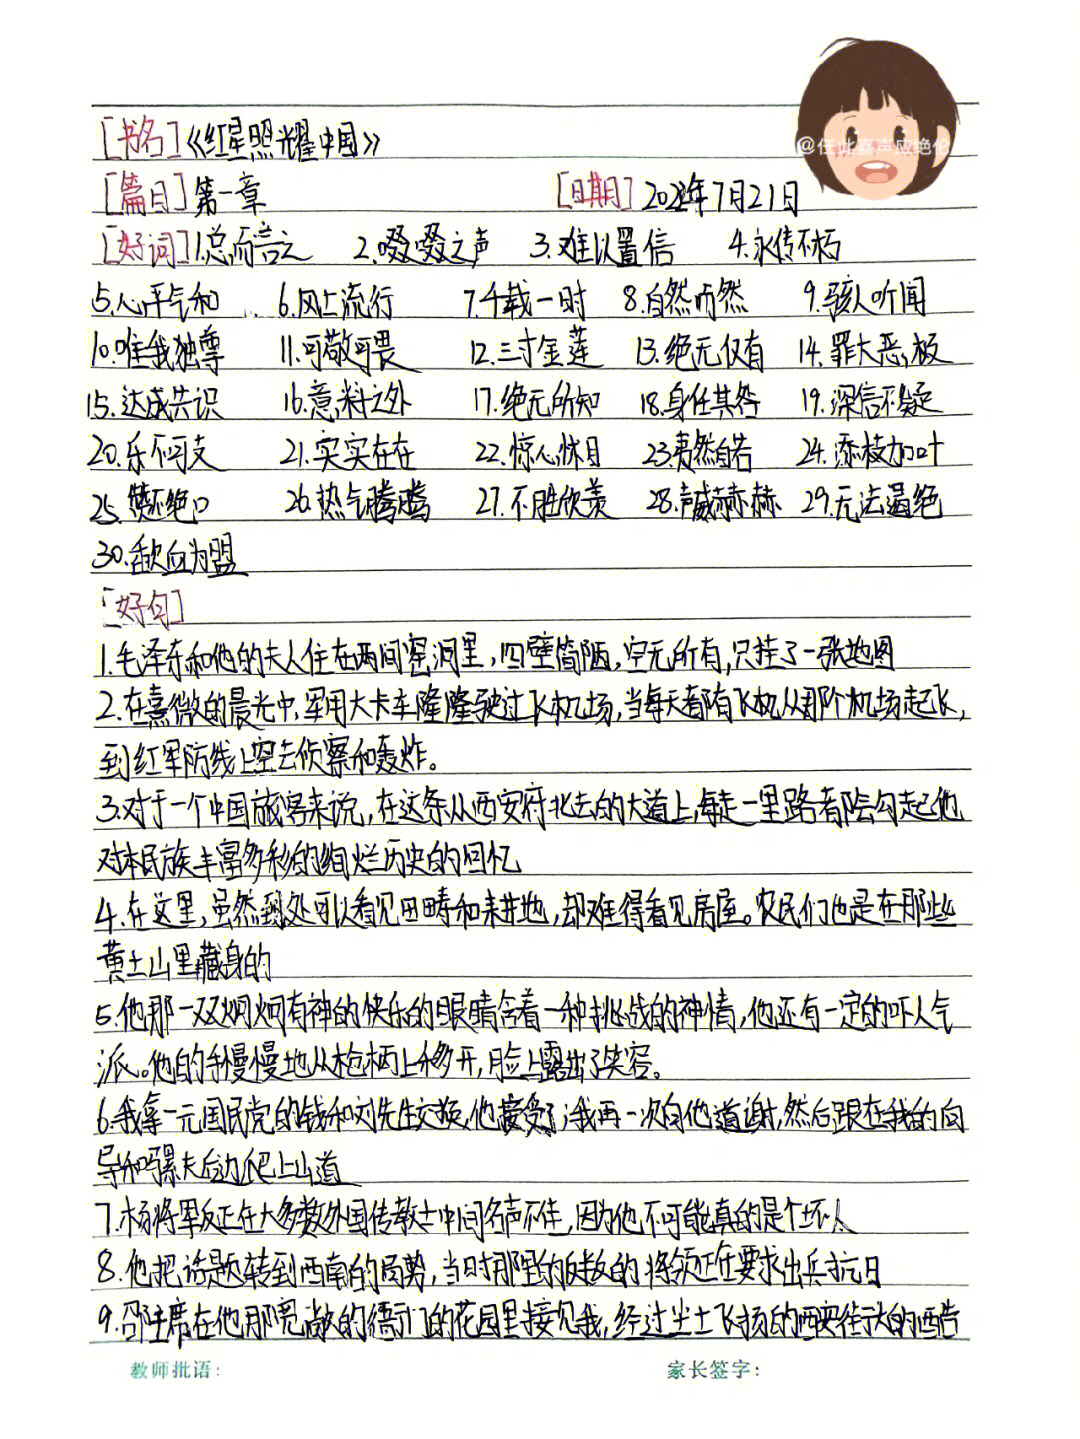 [书名]《红星照耀中国》
@任此嘉声应绝伦
[篇目]第一章 [日期]2022年7月21日
[好词]1.总而言之 2.啜啜之声 3.难以置信 4.永传不朽
5.心平气和 6.风上流行 7.千载一时 8.自然而然 9.骇人听闻
10.唯我独尊 11.可敬可畏 12.三寸金莲 13.绝无仅有 14.罪大恶极
15.达成共识 16.意料之外 17.绝无所知 18.身任其咎 19.深信不疑
20.乐不可支 21.实实在在 22.惊心怵目 23.夷然自若 24.添枝加叶
25.赞不绝口 26.热气腾腾 27.不胜欣羡 28.声威赫赫 29.无法遏绝
30.歃血为盟
[好句]
1.毛泽东和他的夫人住在两间窑洞里,四壁简陋,空无所有,只挂了一张地图
2.在熹微的晨光中,军用大卡车隆隆驶过飞机场,当每天都有飞机从那个机场起飞,
到红军防线上空去侦察和轰炸。
3.对于一个中国旅客来说,在这条从西安府北去的大道上,每走一里路都会勾起他
对本民族丰富多彩的绚烂历史的回忆
4.在这里,虽然到处可以看见田畴和耕地,却难得看见房屋。农民们也是在那些
黄土山里藏身的
5.他那一双炯炯有神的快乐的眼睛含着一种挑战的神情,他还有一定的吓人气
派。他的手慢慢地从枪柄上移开,脸上露出了笑容。
6.我拿一元国民党的钱和刘先生交换,他接受了;我再一次向他道谢,然后跟在我的向
导和骡夫后边爬上山道
7.杨将军反正在大多数外国传教士中间名声不佳,因为他不可能真的是个坏人
8.他把话题转到西南的局势,当时那里的反叛的将领正在要求出兵抗日
9.邵主席在他那宽敞的衙门的花园里接见我,经过尘土飞扬的西安街头的酷
教师批语: 家长签字: